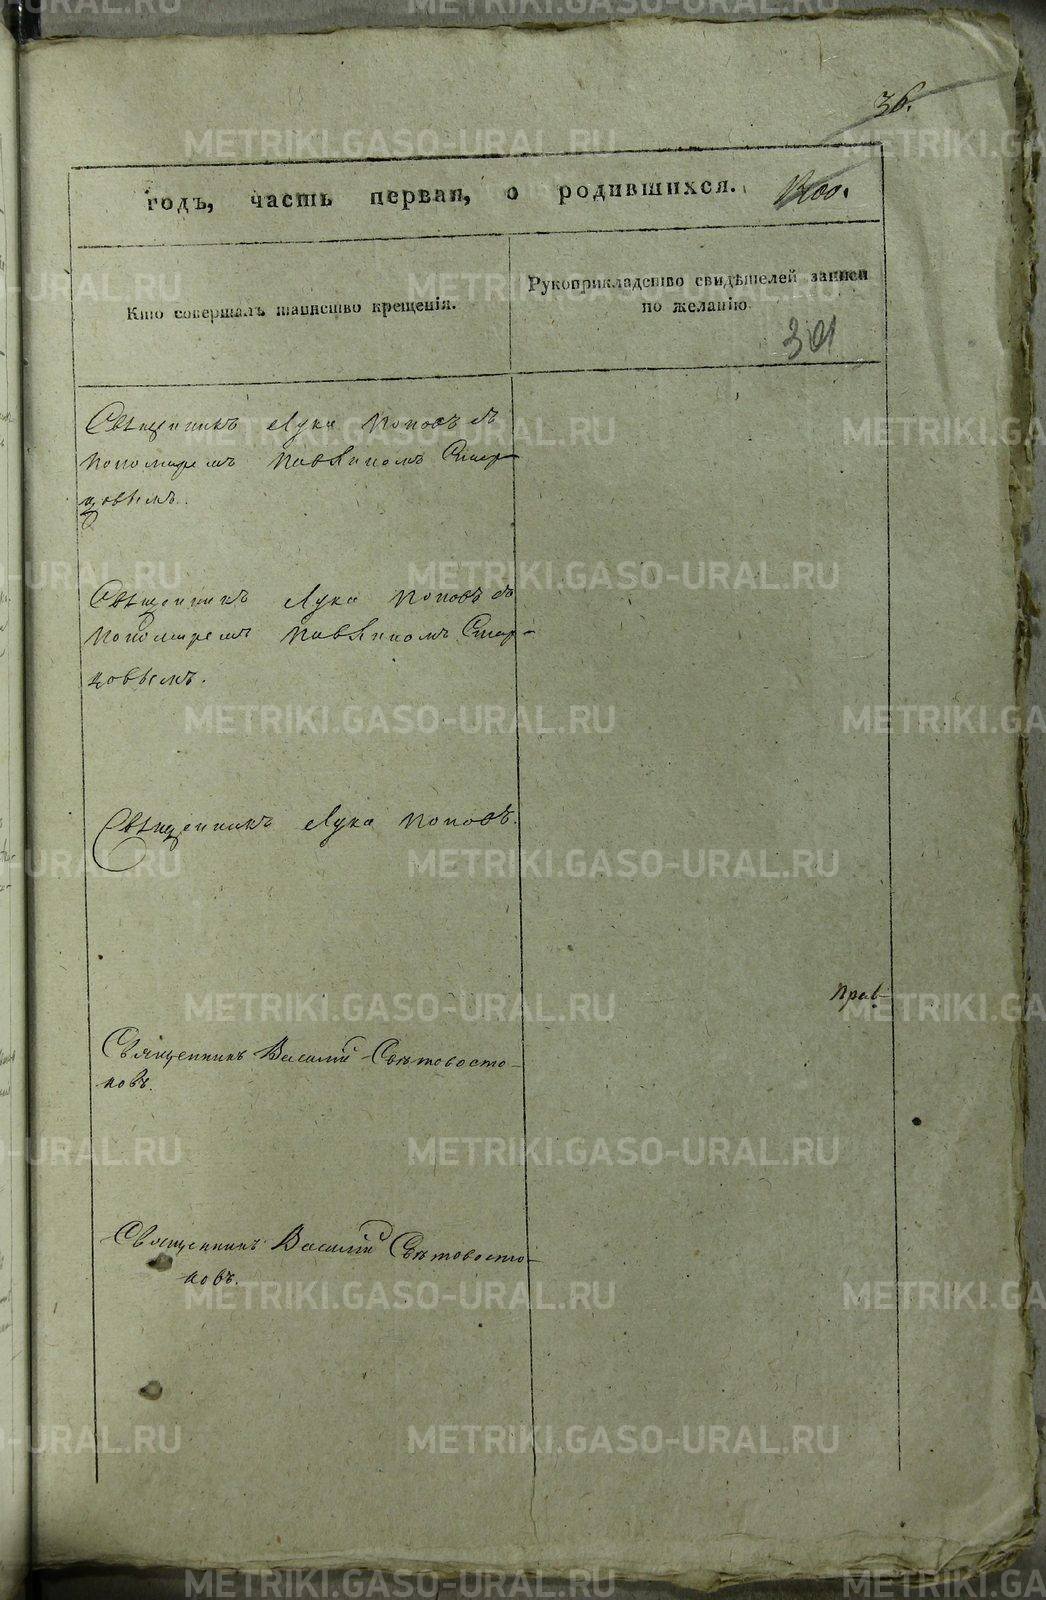 36.
годъ, часть первая, о родившихся.
Кто совершалъ таинство крещенія.
Рукоприкладство свидѣтелей записи
по желанію.
301
Свѣщенникъ Лука Поповъ съ
пономаремъ Павлиномъ Стар-
цовымъ.
Свѣщенникъ Лука Поповъ съ
пономаремъ Павлиномъ Стар-
цовымъ.
Свѣщенникъ Лука Поповъ.
Прав-
Священникъ Василій Свѣтовосто-
ковъ.
Священникъ Василій Свѣтовосто-
ковъ.
METRIKI.GASO-URAL.RU